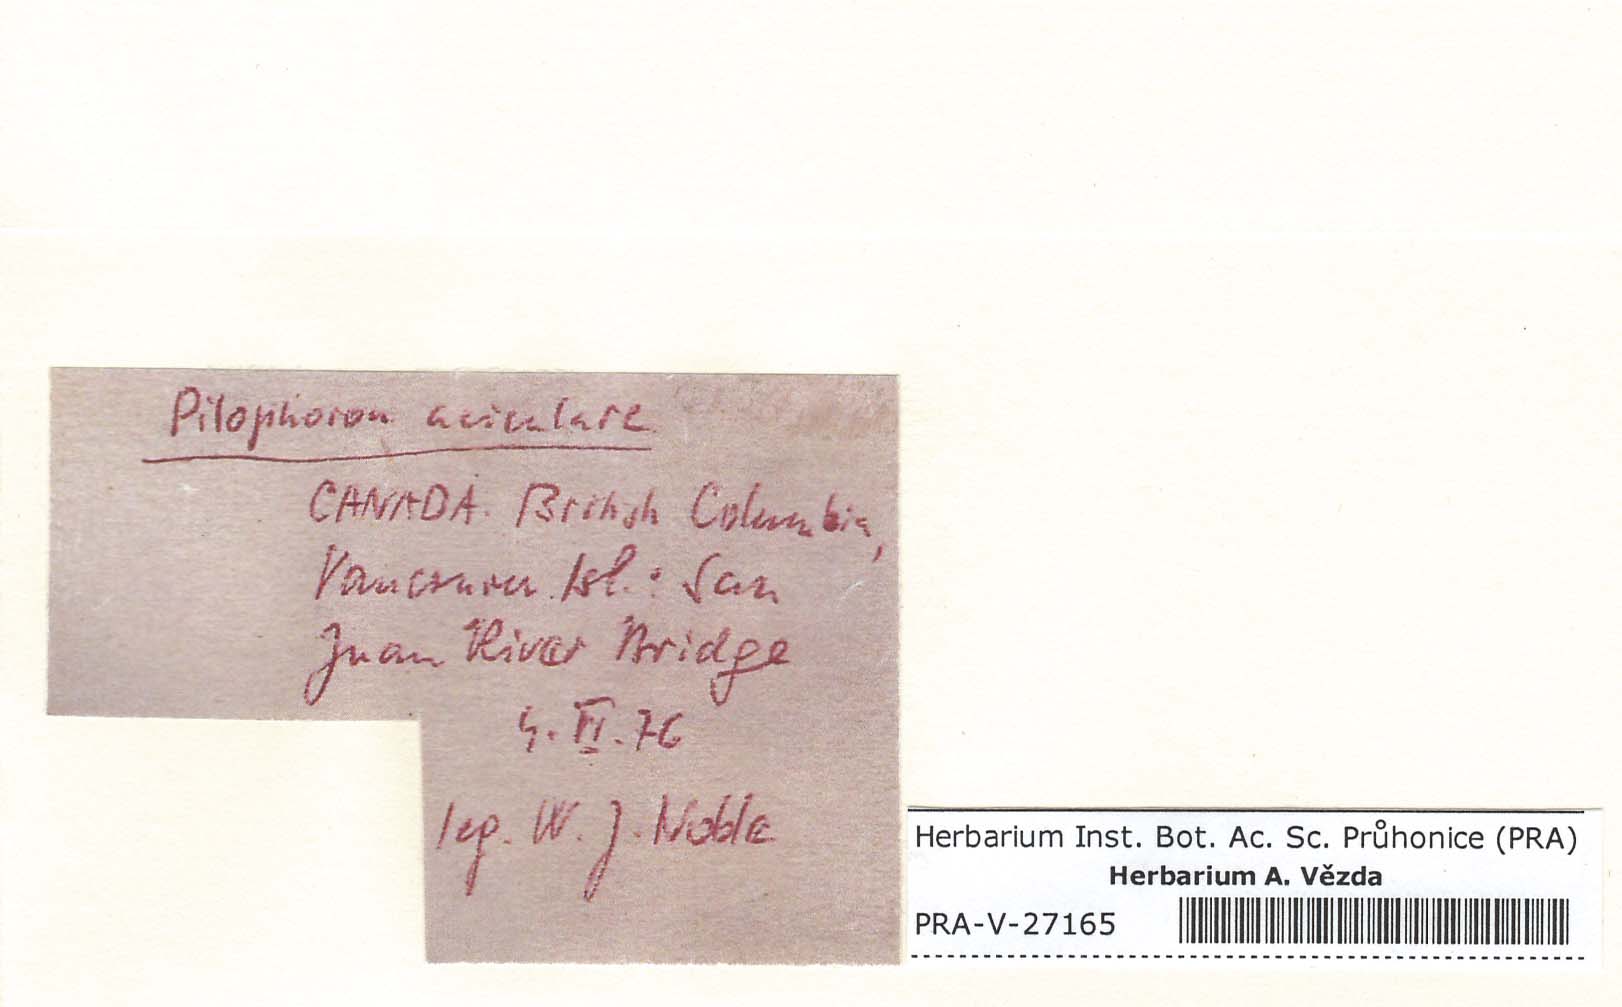 Pilophoron aciculare
CANADA. British Columbia,
Vancouver Isl.: San
Juan River Bridge
4. VI. 76
leg. W. J. Noble
Herbarium Inst. Bot. Ac. Sc. Průhonice (PRA)
Herbarium A. Vězda
PRA-V-27165